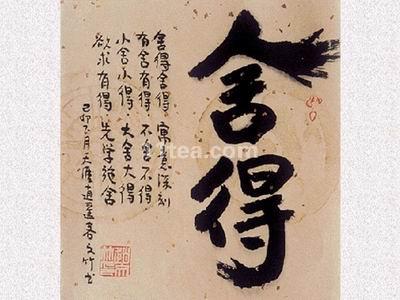 舍得
舍得舍得 寓意深刻
有舍有得 不舍不得
小舍小得 大舍大得
欲求有得 先学施舍
己卯 月天涯逍遥客文竹书
tea.com